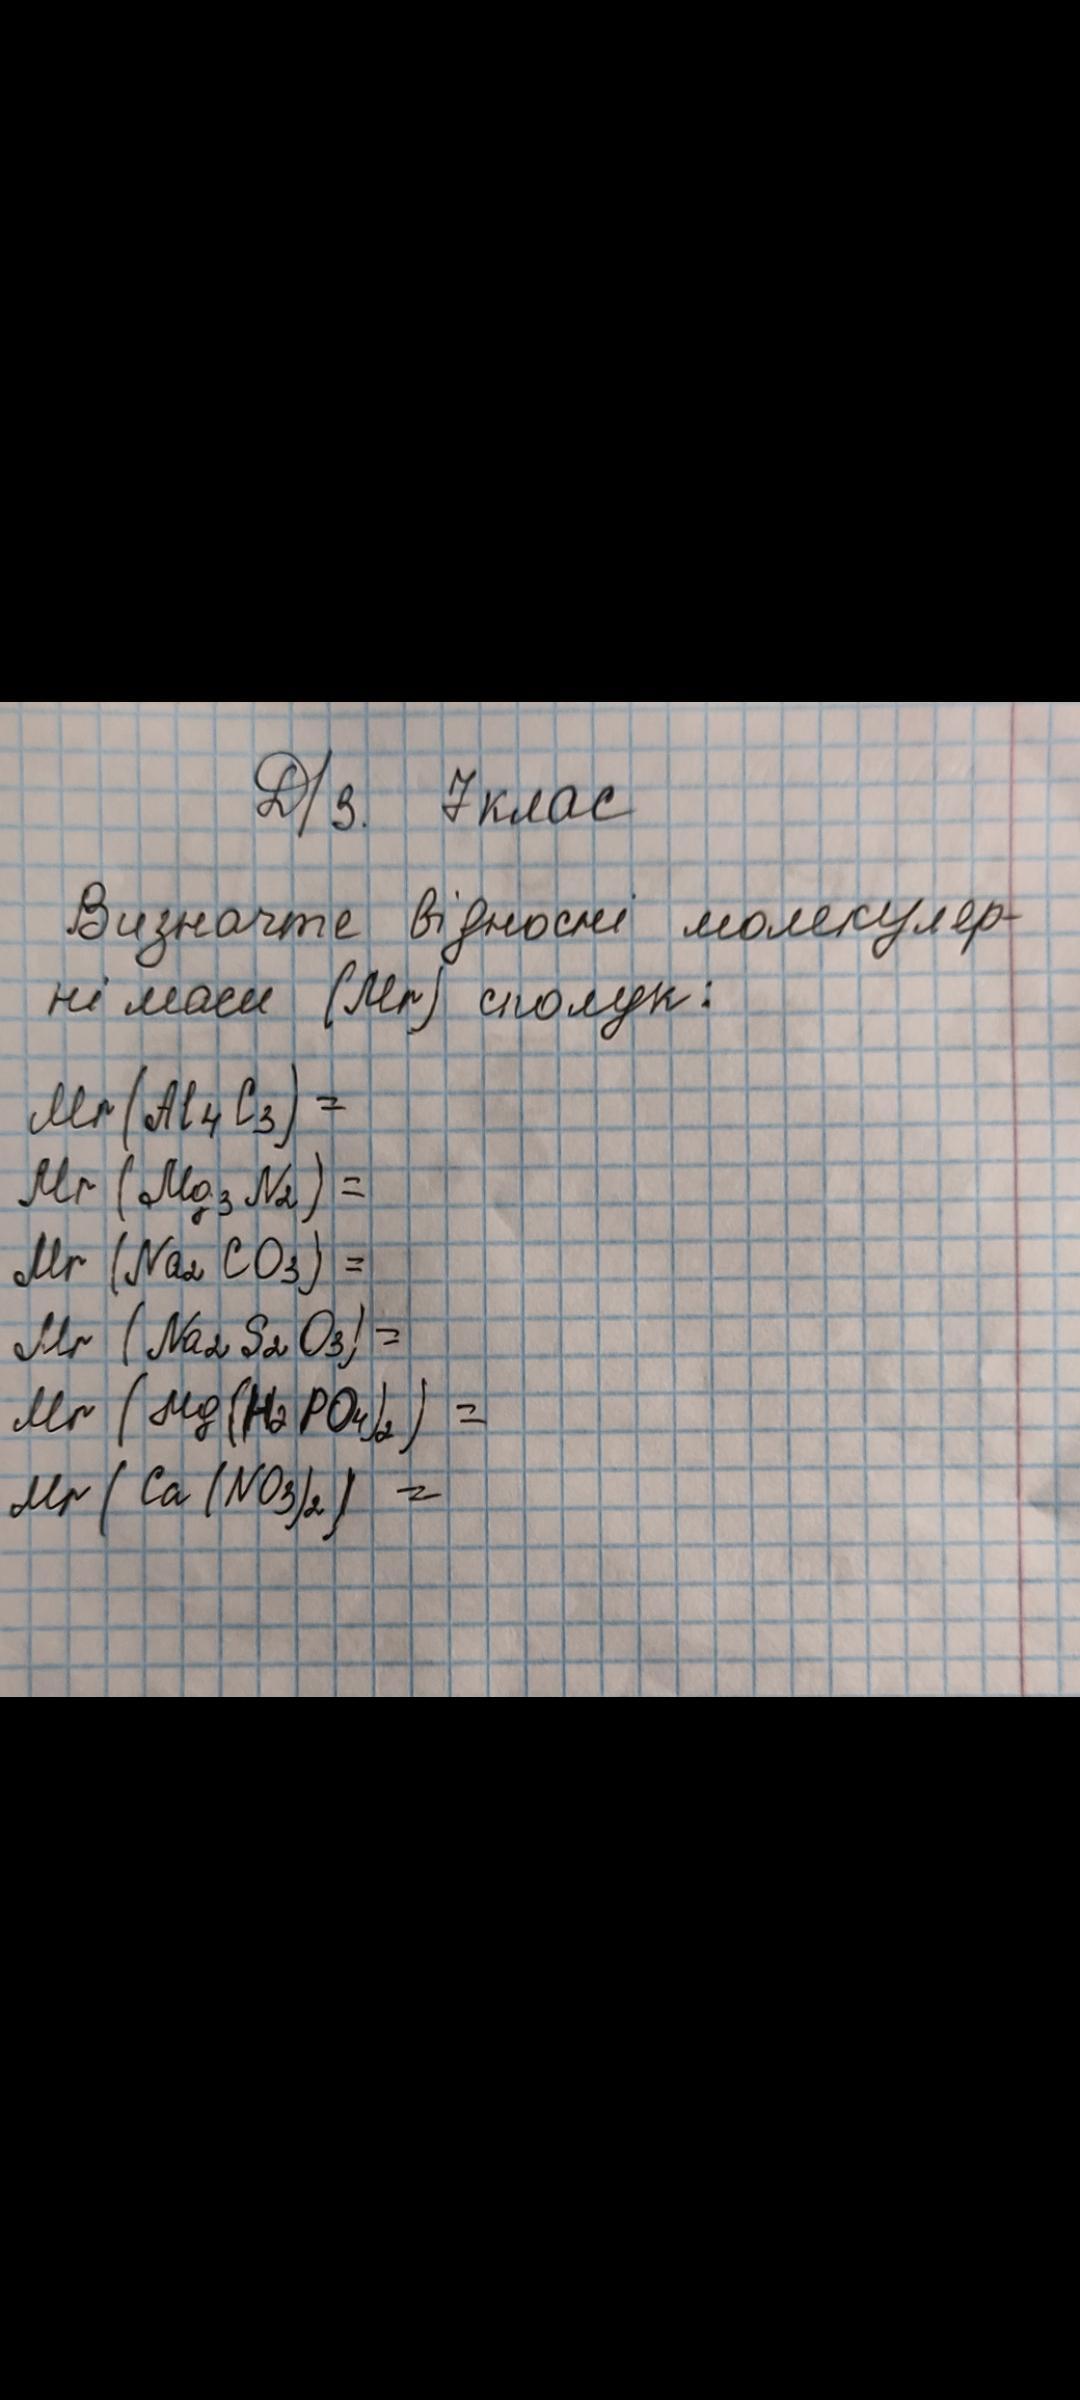 Д/з. 7 клас
Визначте відносні молекуляр-
ні маси (Mr) сполук:
Mr (Al₄C₃) =
Mr (Mg₃N₂) =
Mr (Na₂CO₃) =
Mr (Na₂S₂O₃) =
Mr (Mg(H₂PO₄)₂) =
Mr (Ca(NO₃)₂) =